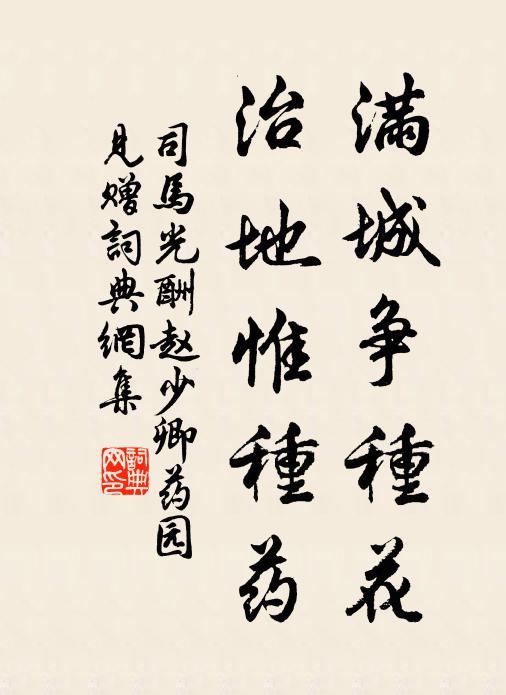 满城争種花
治地惟種药
司馬光酬赵少卿药园
見赠詞典網集
詞典
网印